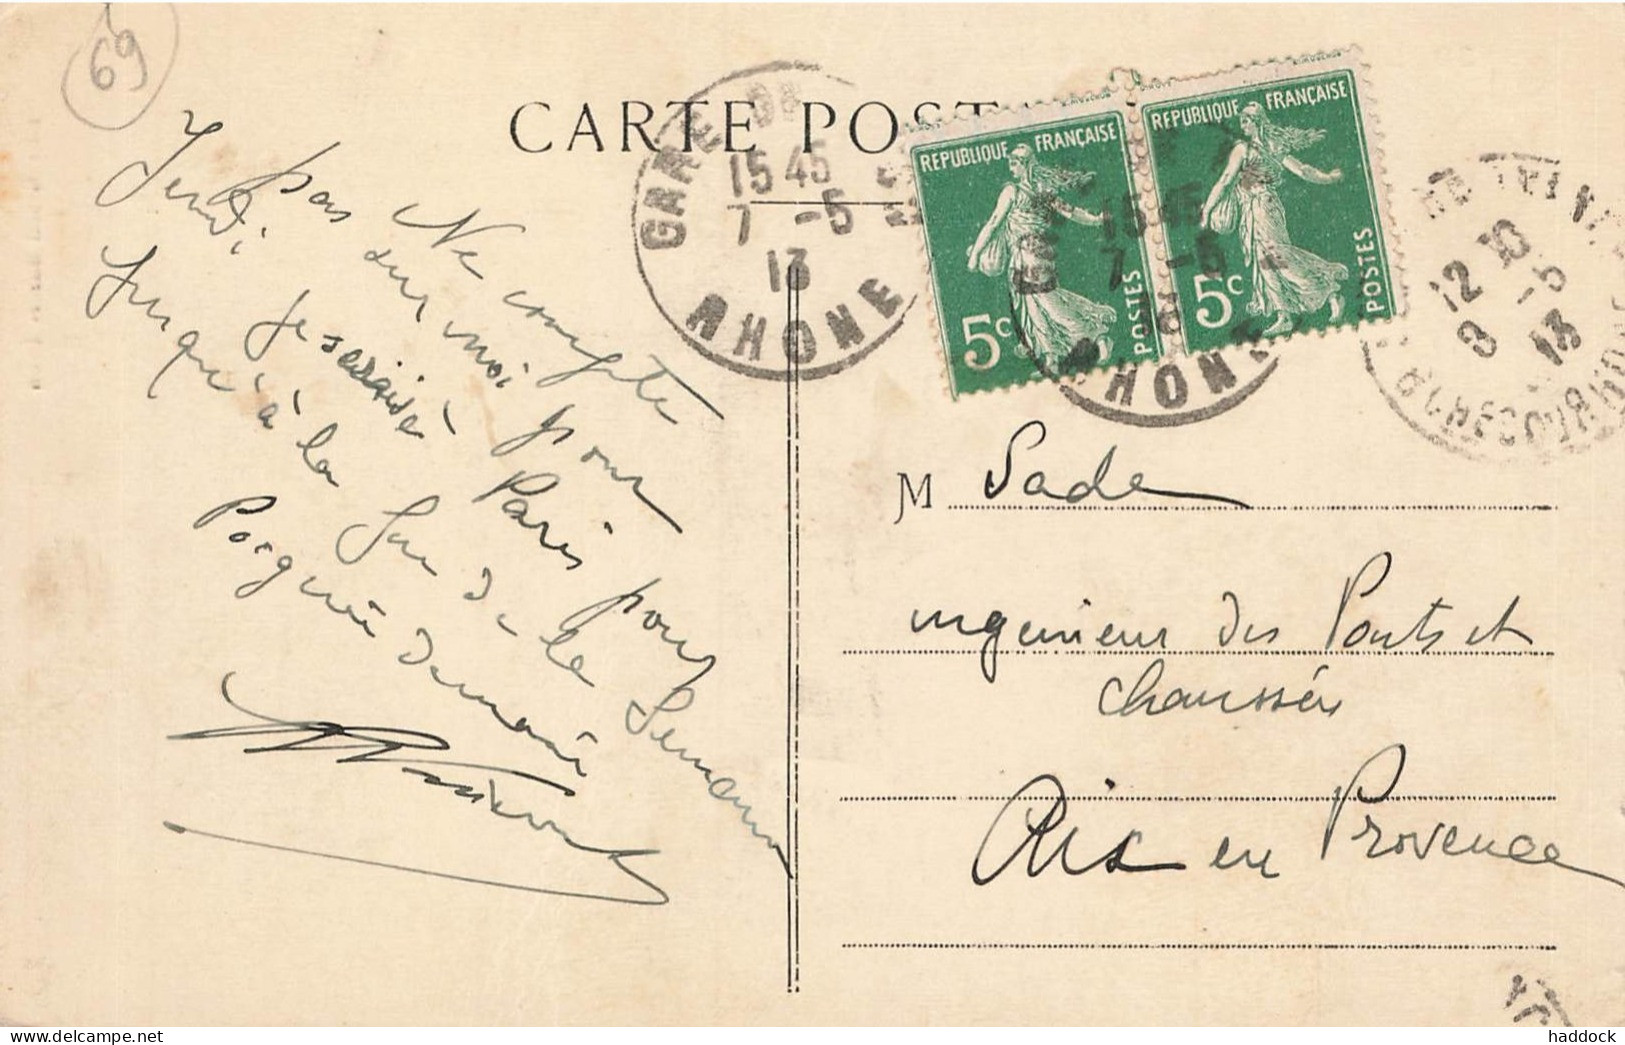 69
CARTE POST
GARE DE
15 45
7 -5
13
RHONE
REPUBLIQUE FRANÇAISE
5c
POSTES
REPUBLIQUE FRANÇAISE
5c
POSTES
15 45
7 -5
RHONE
12 10
9 -5
13
BOUCHES DU RHONE
Ne compte
pas sur moi pour
Jeudi. Je serai à Paris pour
jusqu'à la fin de la Semaine
M Sade
ingenieur des Ponts et
chaussées
Aix en Provence
haddock